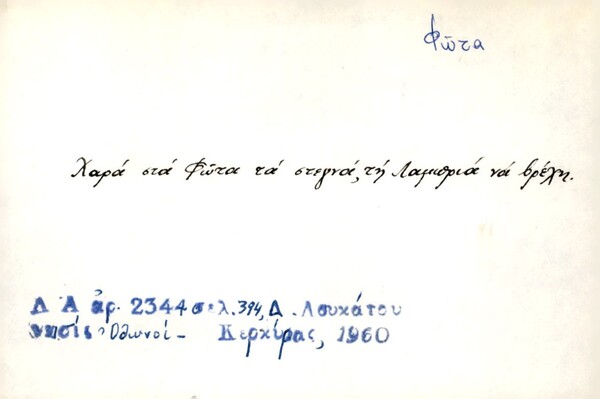 Φῶτα
Χαρά στά Φῶτα τά στεγνά, τή Λαμπριά νά βρέχη.
Λ Α ἀρ. 2344 σελ. 394, Δ. Λουκάτου
νησίς Ὀθωνοί - Κερκίρας, 1960